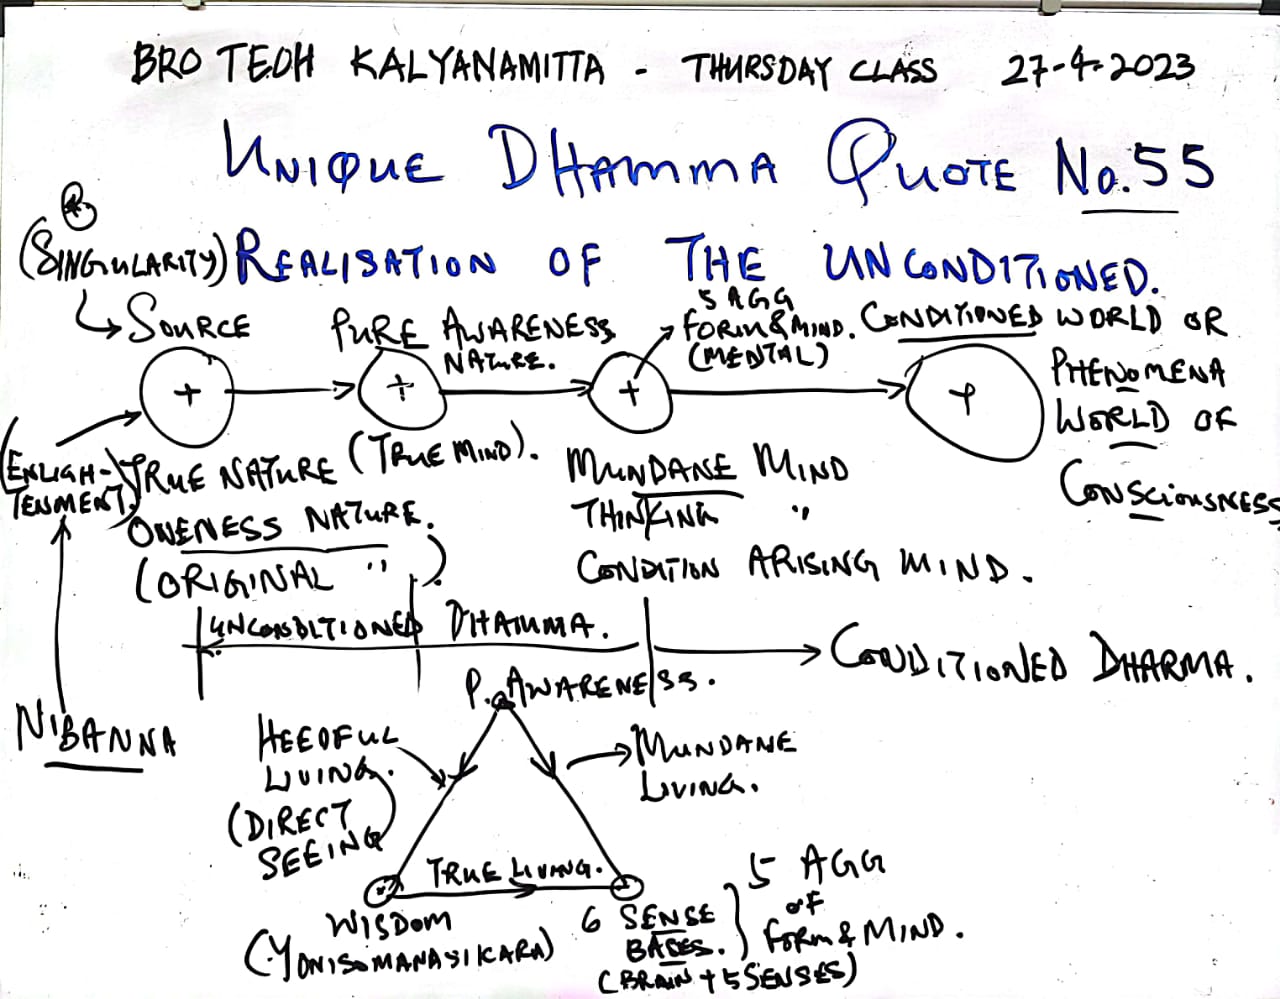 BRO TEOH KALYANAMITTA - THURSDAY CLASS 27-4-2023
UNIQUE DHAMMA QUOTE No.55
(SINGULARITY) REALISATION OF THE UNCONDITIONED.
SOURCE
PURE AWARENESS
NATURE.
5 AGG
FORM & MIND.
(MENTAL)
CONDITIONED WORLD OR
PHENOMENA
WORLD OF
CONSCIOUSNESS
+ + + +
(ENLIGH-
TENMENT)
TRUE NATURE (TRUE MIND).
ONENESS NATURE.
(ORIGINAL ")
MUNDANE MIND
THINKING "
CONDITION ARISING MIND.
UNCONDITIONED DHAMMA.
CONDITIONED DHARMA.
NIBANNA
P. AWARENESS.
HEEDFUL
LIVING.
(DIRECT
SEEING
MUNDANE
LIVING.
TRUE LIVING.
WISDOM
(YONISOMANASIKARA)
6 SENSE
BASES.
(BRAIN + 5 SENSES)
5 AGG
OF
FORM & MIND.